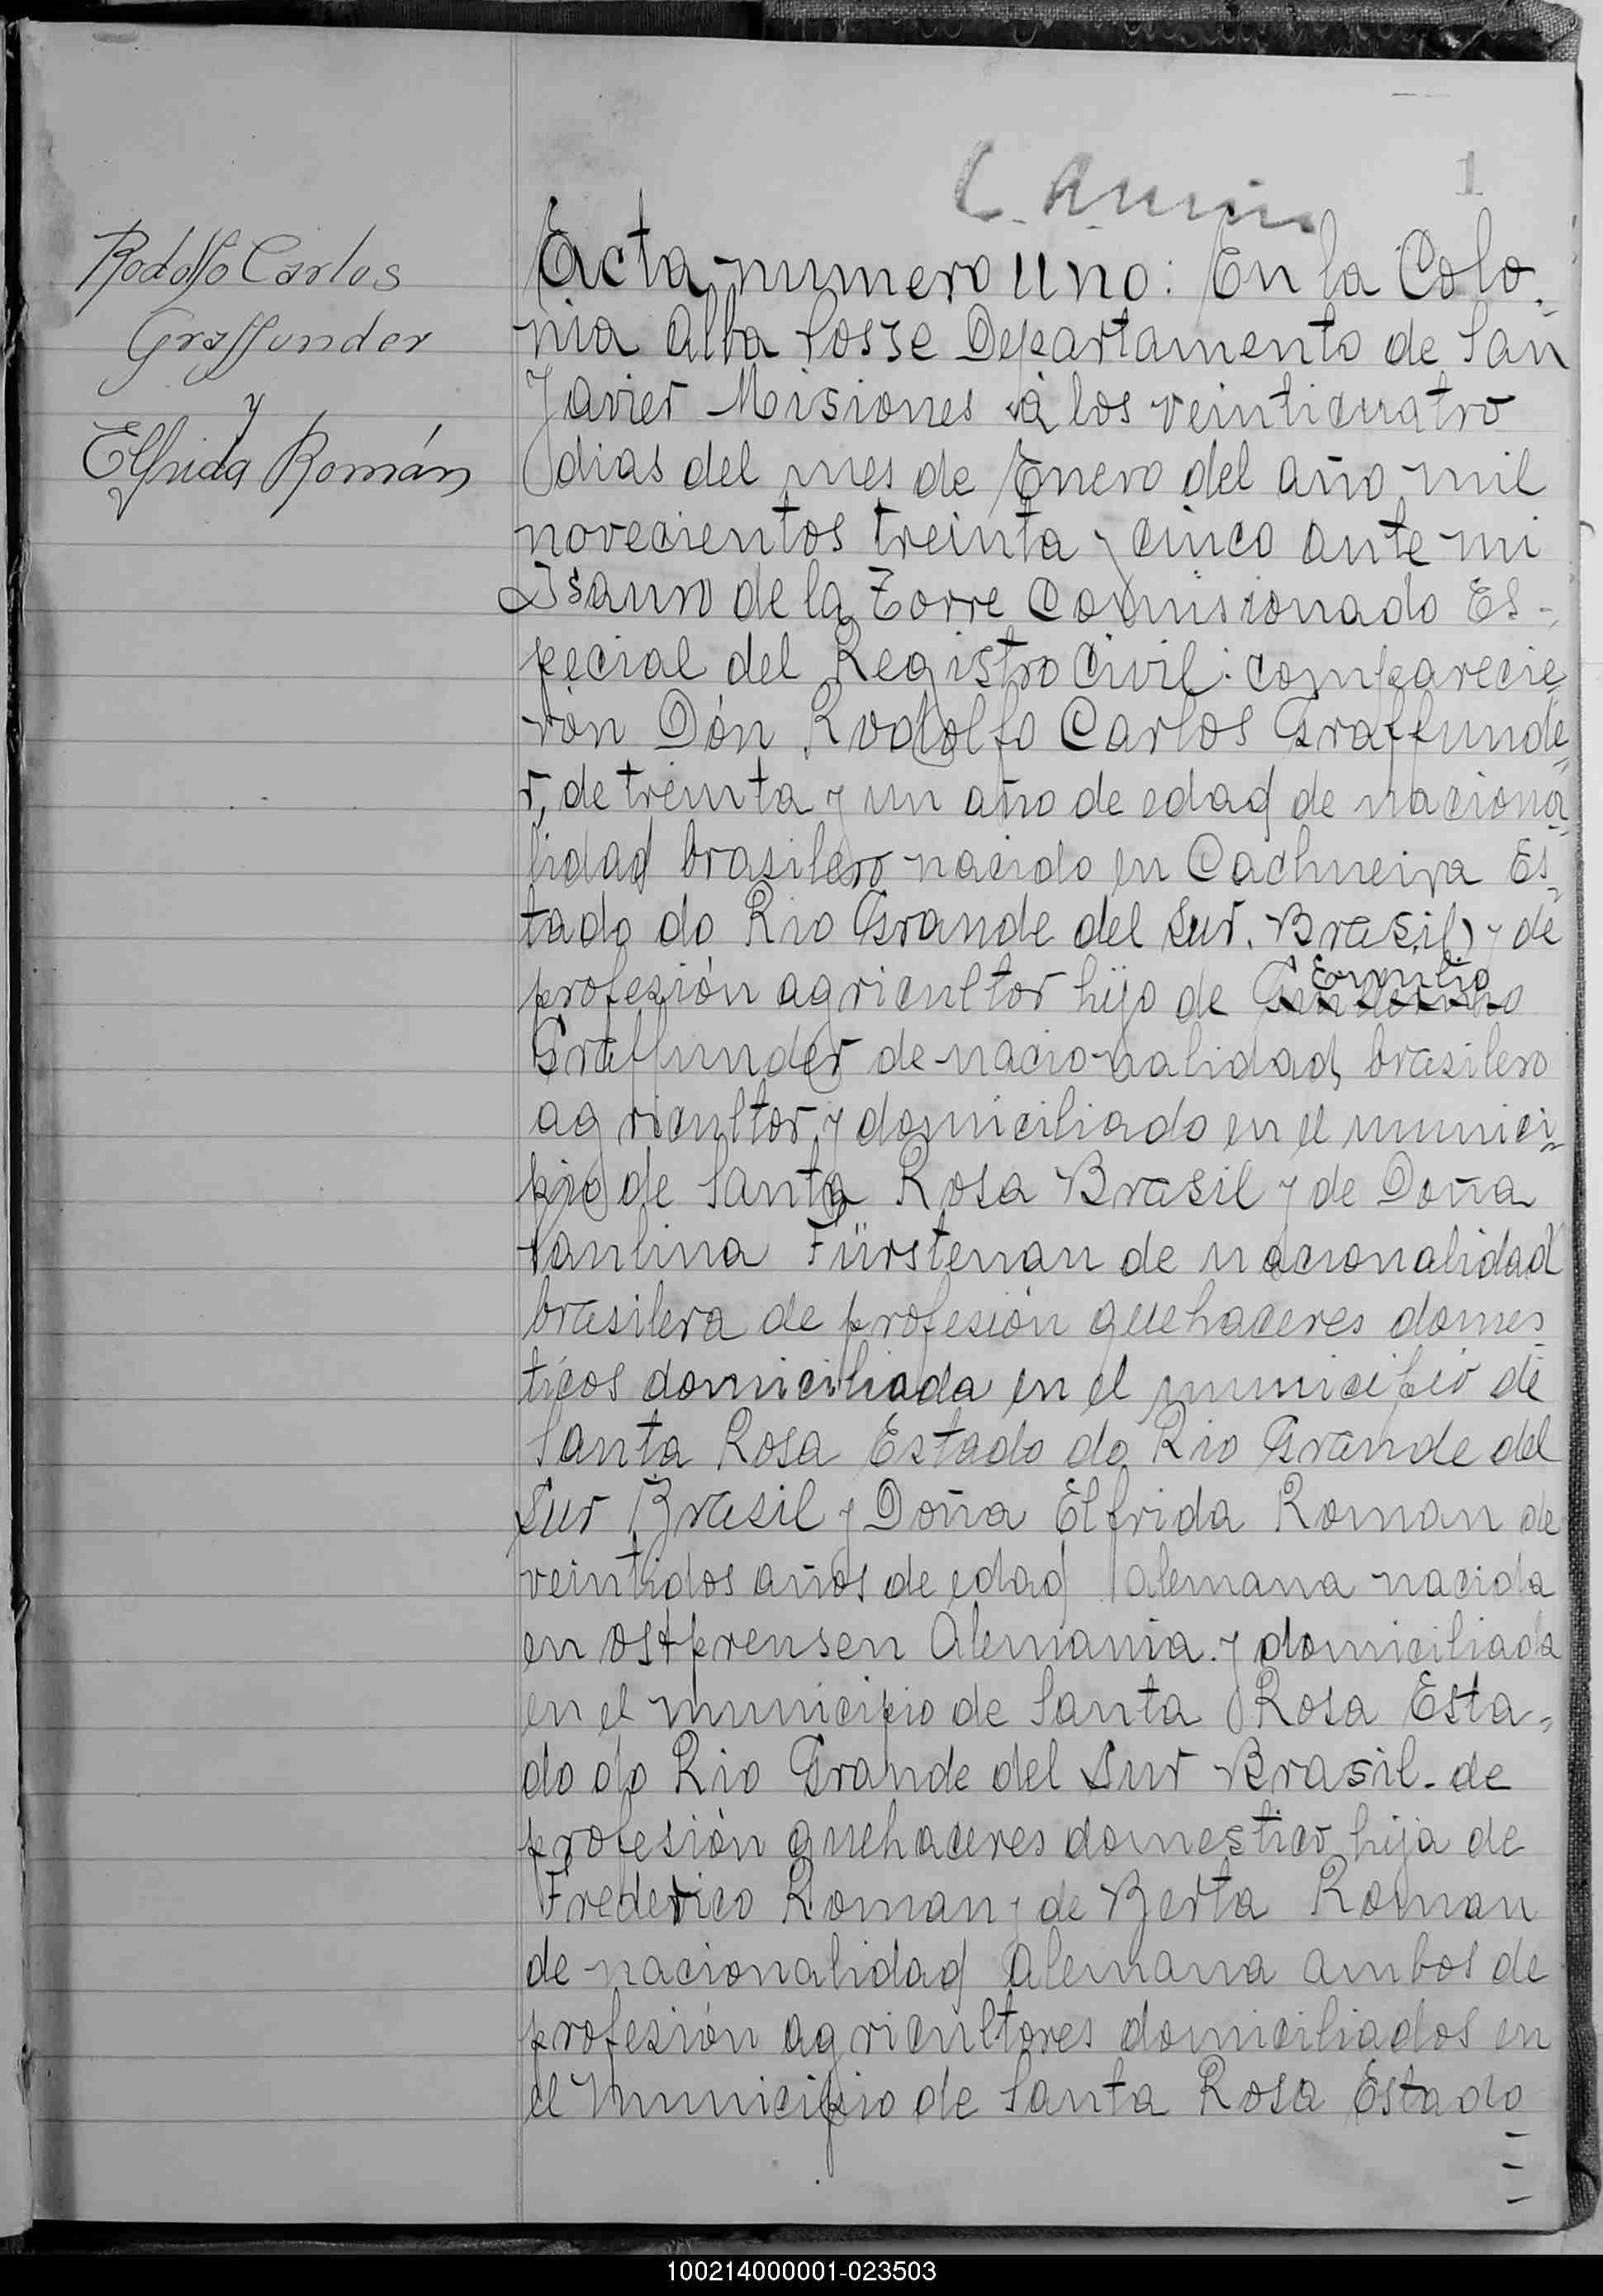 1
Rodolfo Carlos
Graffunder
y
Elfrida Román
Acta numero uno: En la Colo-
nia Alba Posse Departamento de San
Javier Misiones á los veinticuatro
dias del mes de Enero del año mil
novecientos treinta y cinco ante mi
Isauro de la Torre Comisionado Es-
pecial del Registro Civil: comparecie=
ron Dón Rodolfo Carlos Graffunde=
r, de treinta y un año de edad de naciona=
lidad brasilero nacido en Cachueira Es=
tado do Rio Grande del Sur. Brasil) y de
profesión agricultor hijo de Emilio
Graffunder de nacionalidad brasilero
agricultor y domiciliado en el munici=
pio de Santa Rosa Brasil y de Doña
Paulina Fürstenau de nacionalidad
brasilera de profesión quehaceres domes
ticos domiciliada en el municipio de
Santa Rosa Estado do Rio Grande del
Sur Brasil y Doña Elfrida Roman de
veintidos años de edad alemana nacida
en ostpreusen Alemania. y domiciliada
en el municipio de Santa Rosa Esta=
do do Rio Grande del Sur Brasil. de
profesión quehaceres domestico hija de
Frederico Roman y de Berta Roman
de nacionalidad alemana ambos de
profesión agricultores domiciliados en
el Municipio de Santa Rosa Estado
100214000001-023503